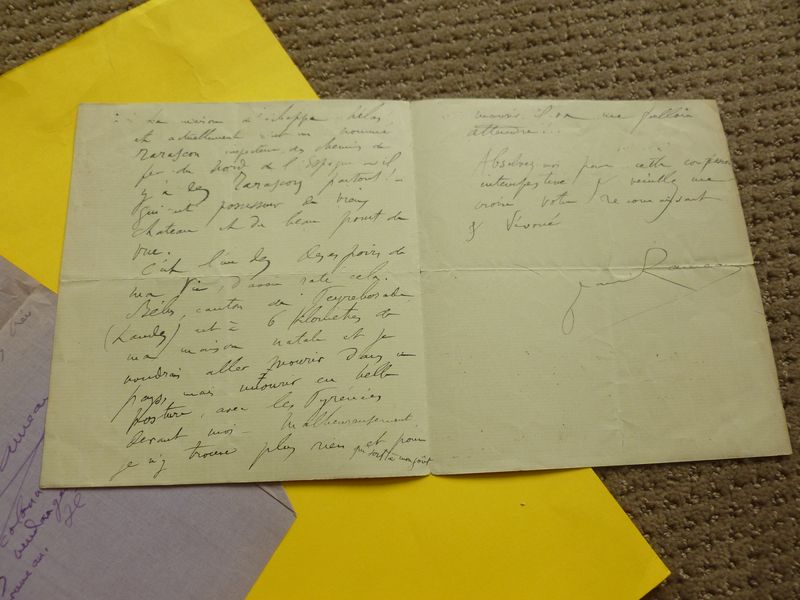 La maison m'échappa, hélas,
et actuellement c'est un nommé
Tarascon inspecteur des chemins de
fer du Nord de l'Espagne — il
y a des Tarascon partout! —
qui est possesseur du vieux
château et du beau point de
vue.
C'est l'un des désespoirs de
ma vie, d'avoir raté cela.
Bélus, canton de Peyrehorade
(Landes) est à 6 kilomètres de
ma maison natale et je
voudrais aller mourir dans ce
pays, mais mourir en belle
posture, avec les Pyrénées
devant moi — Malheureusement,
je n'y trouve plus rien qui soit à mon goût et pour
mourir, il va me falloir
attendre...
Absolvez-moi pour cette
intempestive & veuillez me
croire votre reconnaissant
& dévoué
Jean Rameau